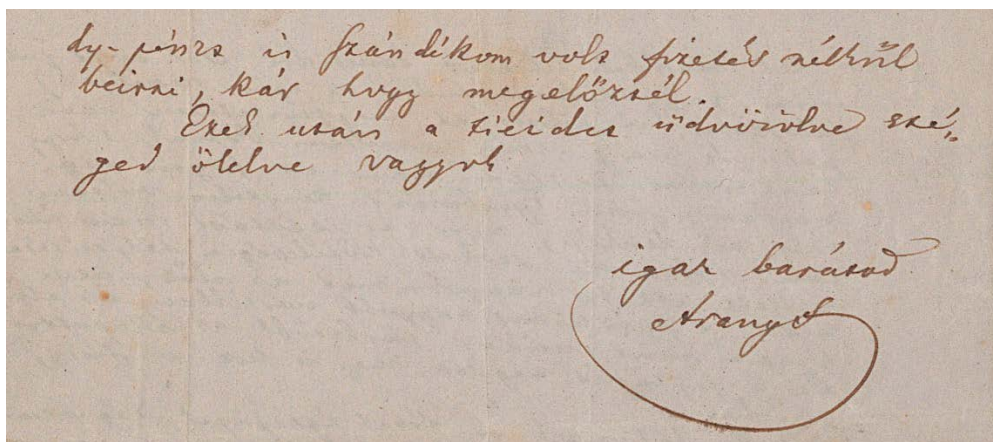 dy-pénzt is szándékom volt fizetés nélkül
beirni, kár hogy megelőztél.
Ezek után a tieidet üdvözölve té-
ged ölelve vagyok
igaz barátod
Arany J